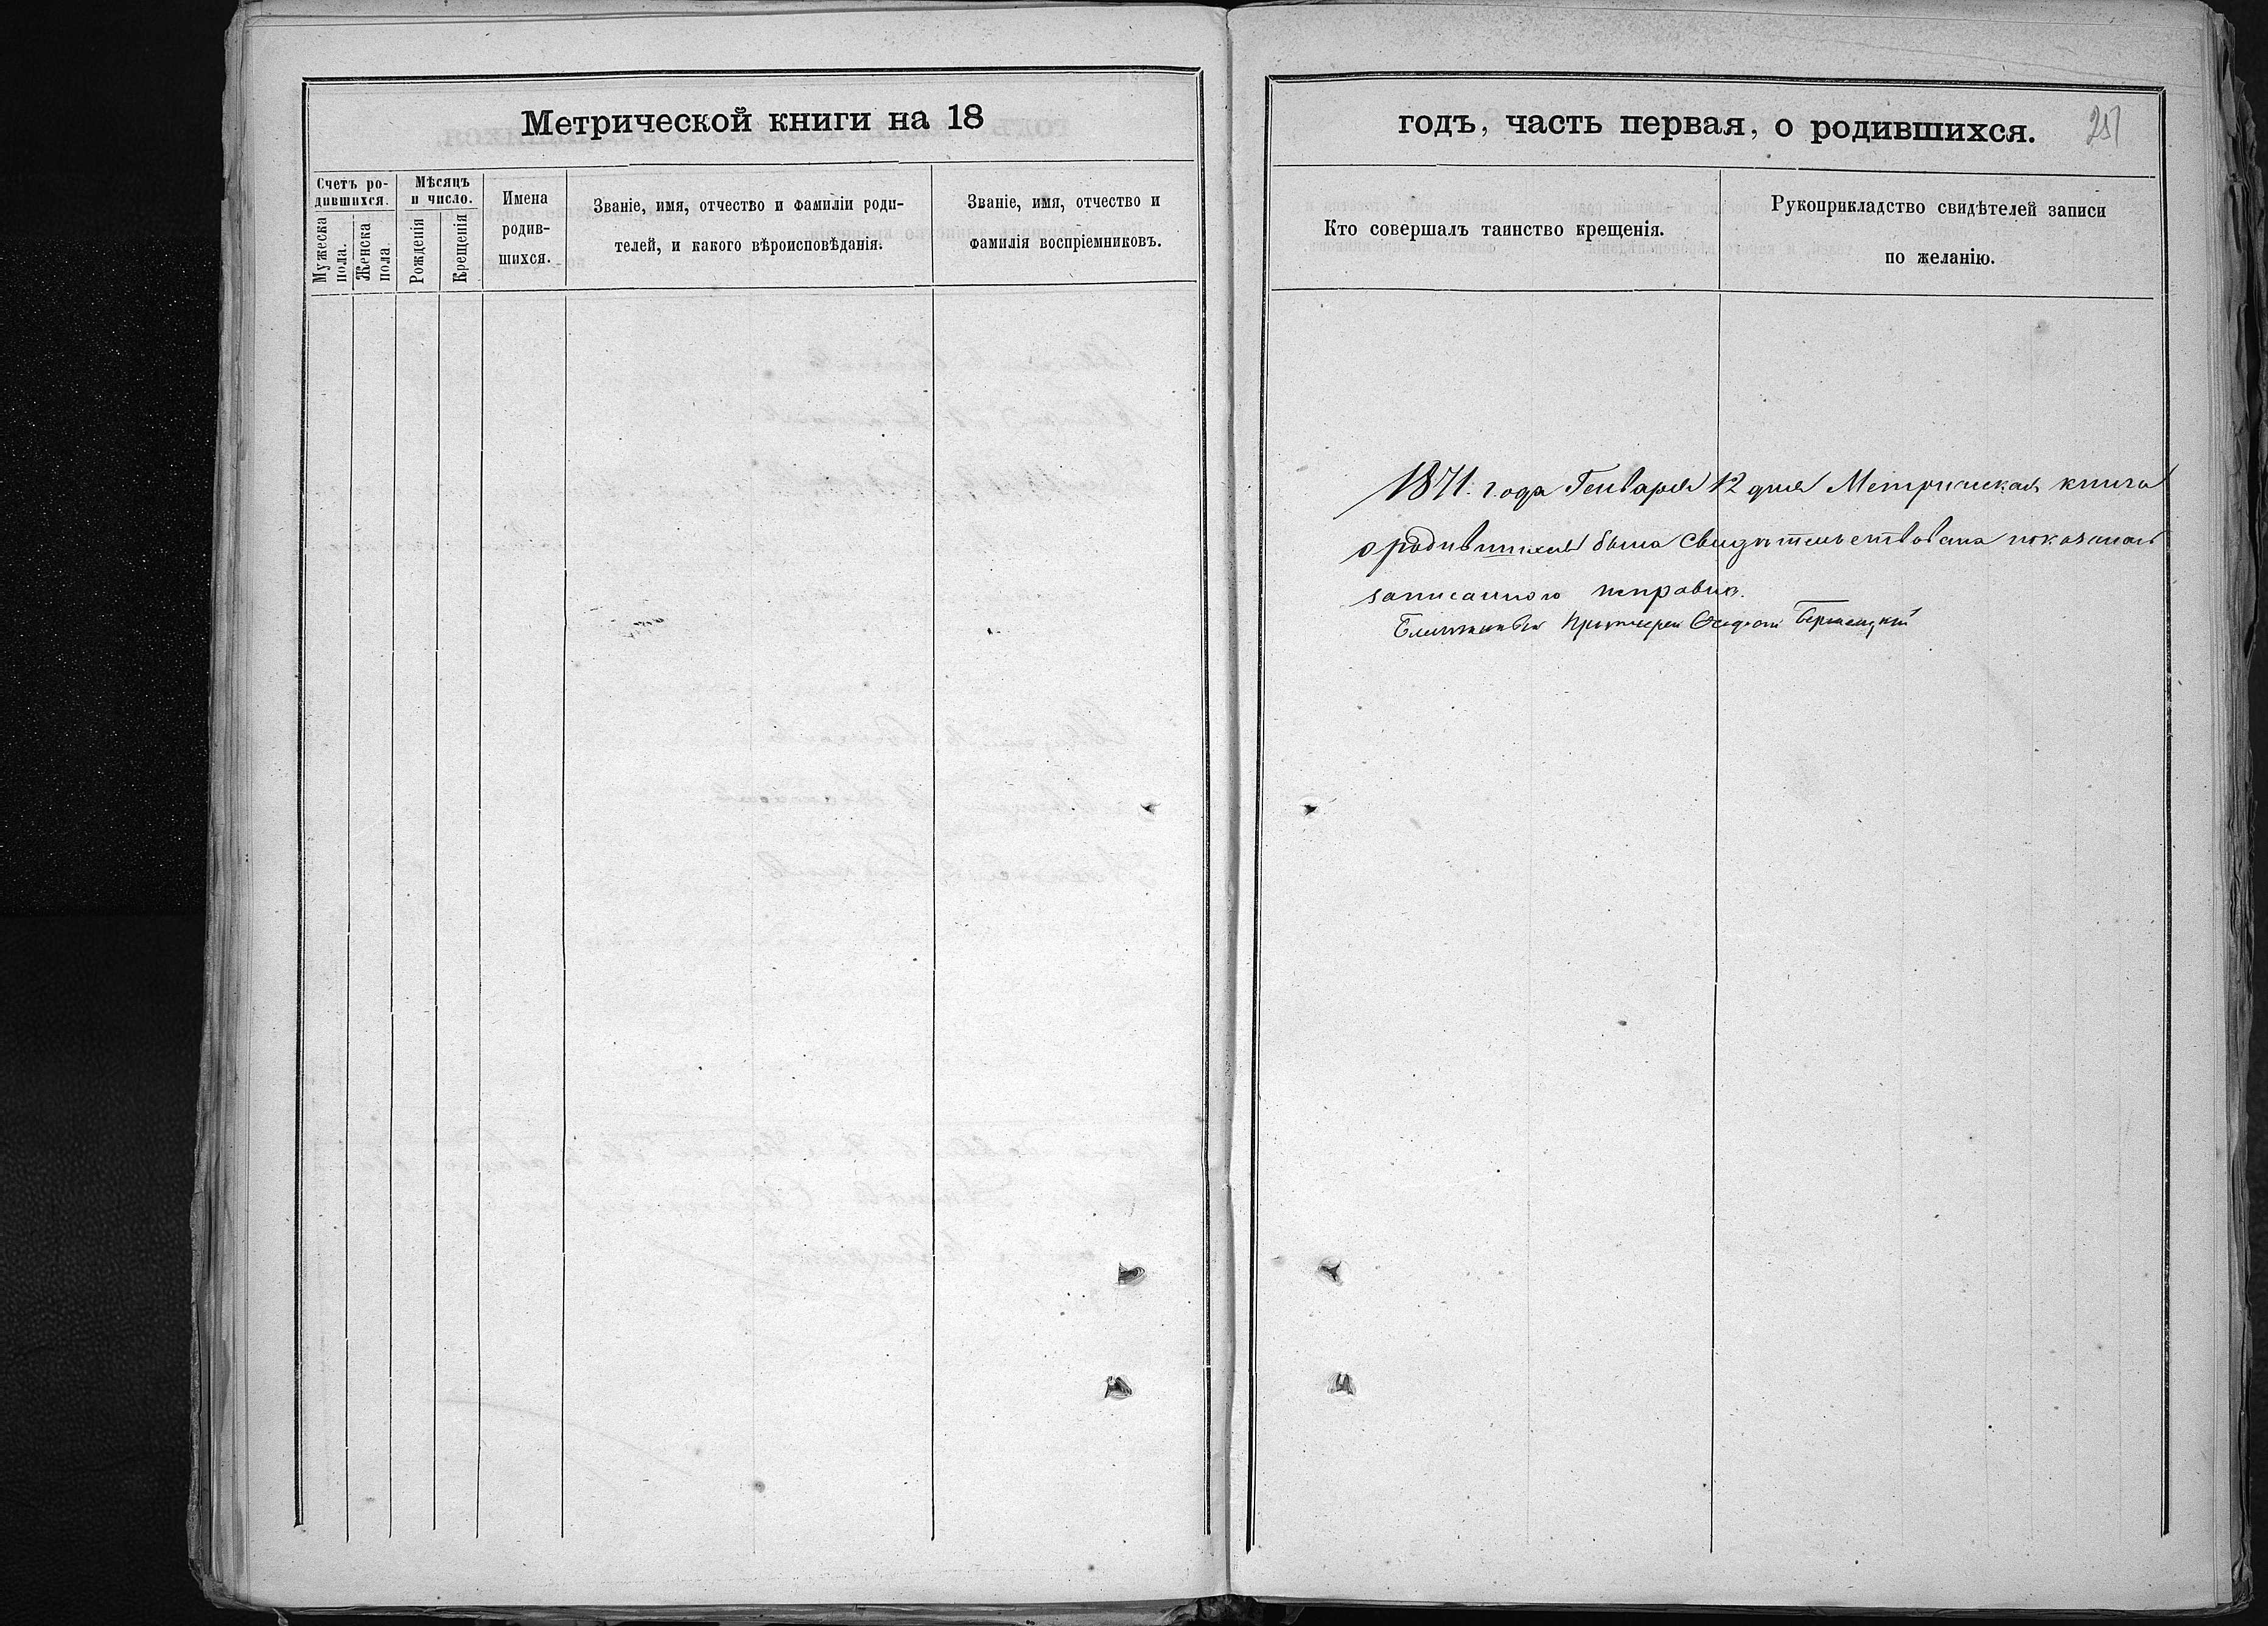 Метрической книги на 18
Счетъ ро-
дившихся.
Мужеска
пола.
Женска
пола
Мѣсяцъ
и число.
Рожденія
Крещенія
Имена
родив-
шихся.
Званіе, имя, отчество и фамиліи роди-
телей, и какого вѣроисповѣданія.
Званіе, имя, отчество и
фамилія воспріемниковъ.
годъ, часть первая, о родившихся.
251
Кто совершалъ таинство крещенія.
Рукоприкладство свидѣтелей записи
по желанію.
1871. года Генваря 12 дня Метрическая книга
о родившихся была свидѣтельствована
записанною